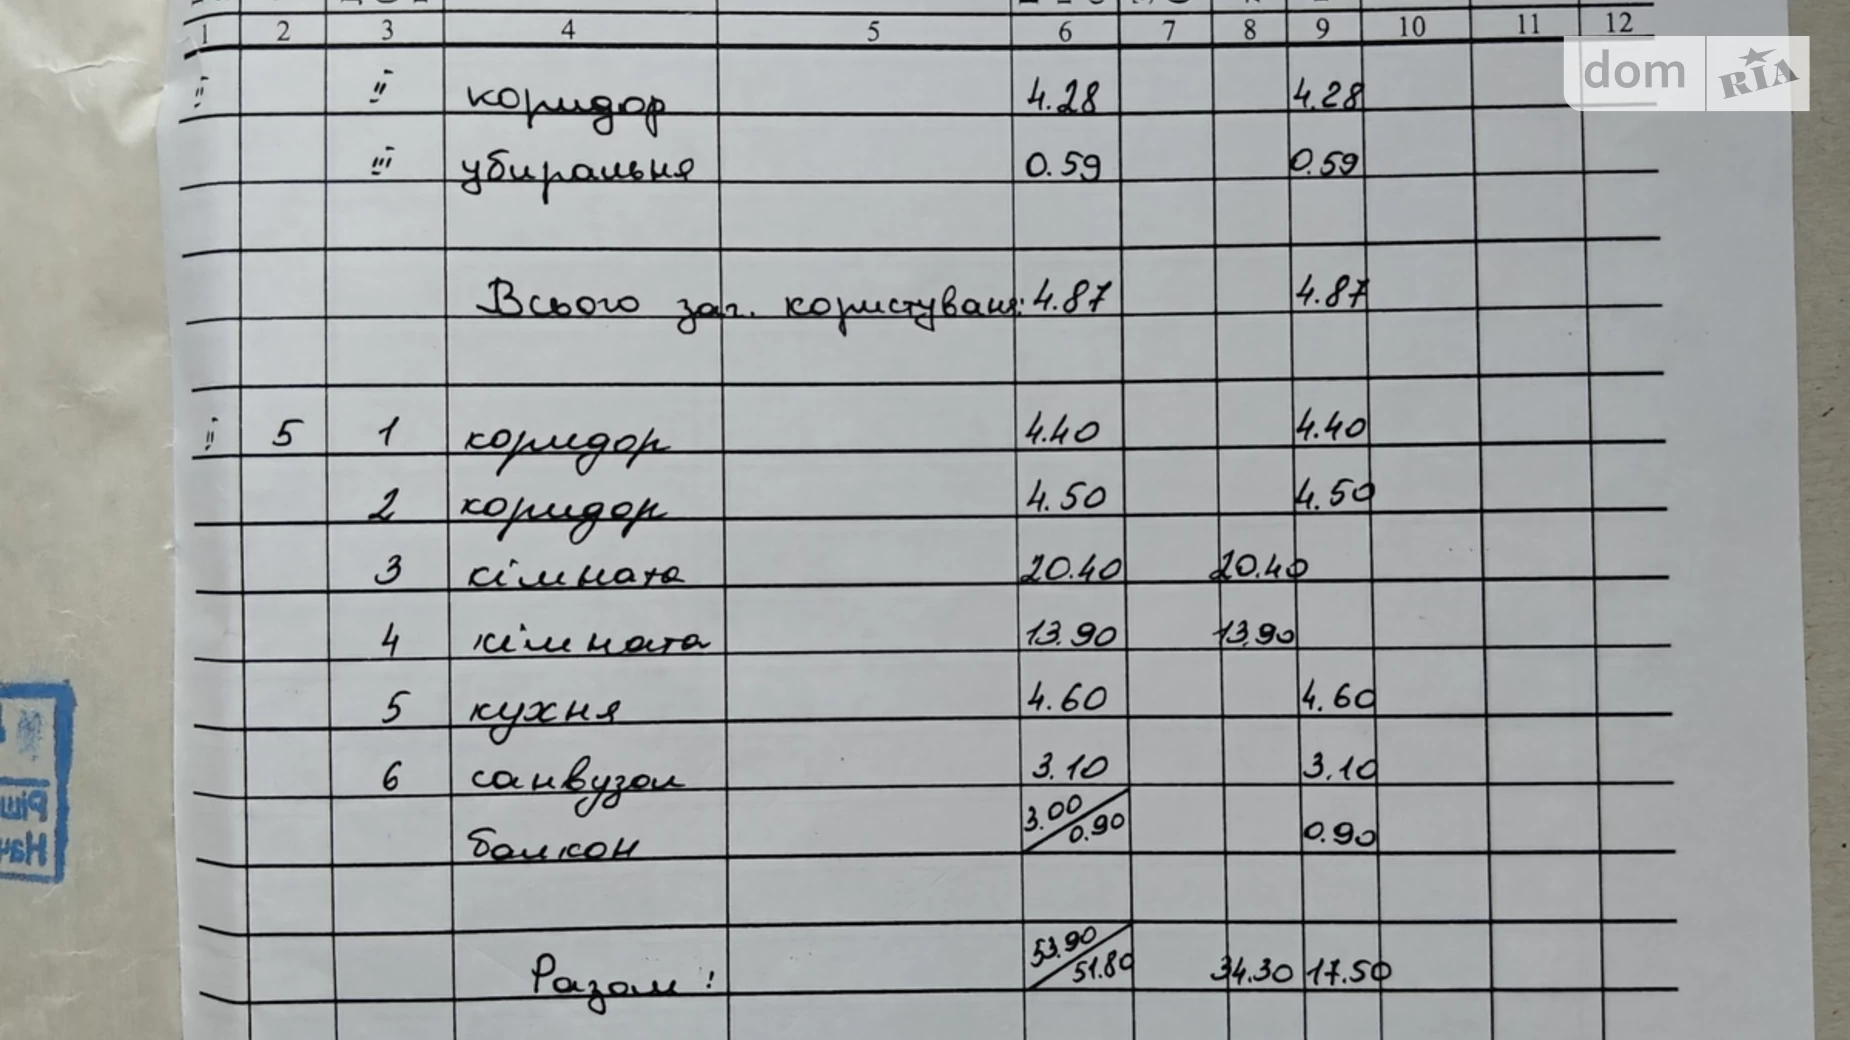 1 2 3 4 5 6 7 8 9 10 11 12
dom RIA
II II коридор 4.28 4.28
III убиральня 0.59 0.59
Всього заг. користуван: 4.87 4.87
II 5 1 коридор 4.40 4.40
2 коридор 4.50 4.50
3 кімната 20.40 20.40
4 кімната 13.90 13.90
5 кухня 4.60 4.60
6 санвузол 3.10 3.10
балкон 3.00/0.90 0.90
Разом: 53.90/51.80 34.30 17.50